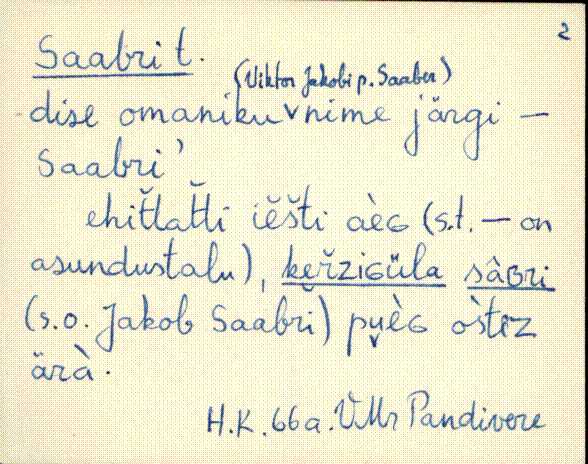 2
Saabri t.
(Viktor Jakobi p. Saaber)
dise omaniku v nime järgi —
Saabri'
ehit̆lat̆ti iĕšti aèG (s.t. — on
asundustalu), keřziGüla sâGri
(s.o. Jakob Saabři) pu̬èG òstez
ärà.
H.K. 66a. VMr Pandivere